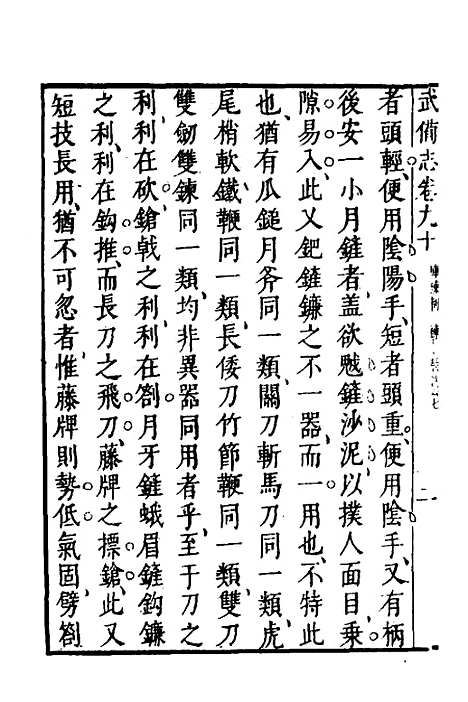 武備志卷九十
二
者頭輕便用陰陽手短者頭重便用陰手又有柄
後安一小月鏟者蓋欲兜鏟沙泥以撲人面目乗
隙易入此又鈀鏟鐮之不一器而一用也不特此
也猶有瓜鎚月斧同一類關刀斬馬刀同一類虎
尾梢軟鐵鞭同一類長倭刀竹節鞭同一類雙刀
雙劒雙鍊同一類均非異器同用者乎至于刀之
利利在砍鎗戟之利利在劄月牙鏟蛾眉鏟鈎鐮
之利利在鈎推而長刀之飛刀藤牌之標鎗此又
短技長用猶不可忽者惟藤牌則勢低氣固劈劄